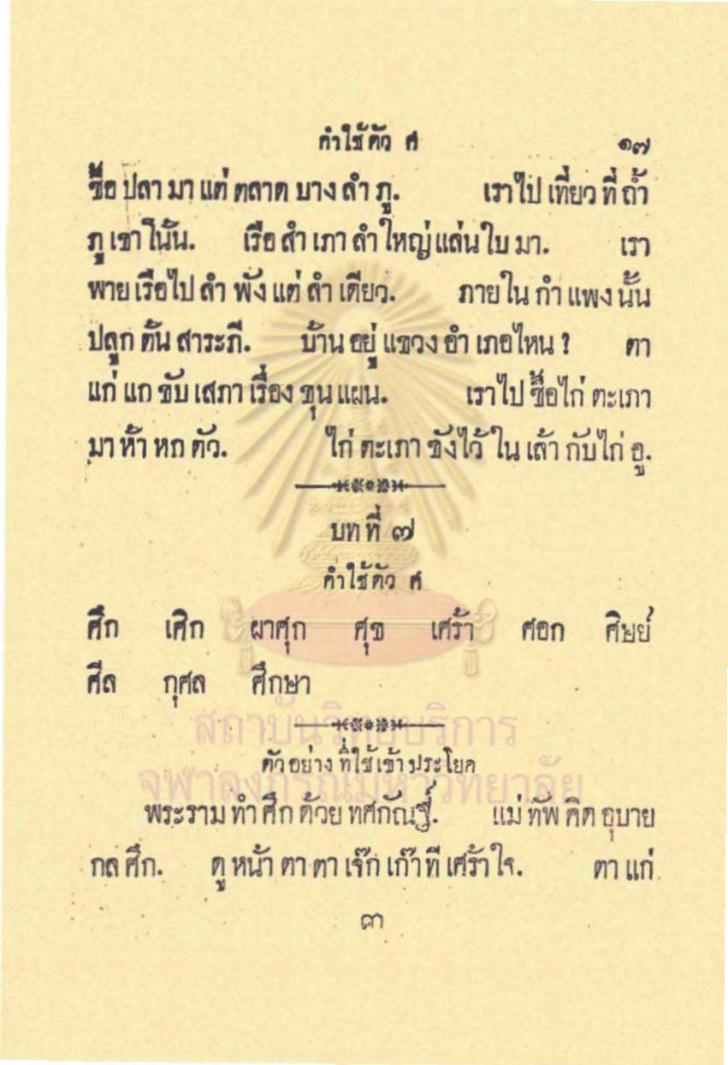 คำใช้ตัว ศ ๑๗
ซื้อ ปลา มา แต่ ตลาด บาง ลำ ภู. เราไป เที่ยว ที่ ถ้ำ
ภู เขา โน้น. เรือ สำ เภา ลำ ใหญ่ แล่น ใบ มา. เรา
พาย เรือ ไป ลำ พัง แต่ ลำ เดียว. ภาย ใน กำ แพง นั้น
ปลูก ต้น สาระภี. บ้าน อยู่ แขวง อำ เภอ ไหน ? ตา
แก่ แก ขับ เสภา เรื่อง ขุน แผน. เราไป ซื้อ ไก่ ตะเภา
มา ห้า หก ตัว. ไก่ ตะเภา ขังไว้ ใน เล้า กับ ไก่ อู.
บท ที่ ๗
คำใช้ตัว ศ
ศึก เศิก ผาศุก ศุข เศร้า ศอก ศิษย์
ศีล กุศล ศึกษา
สถาบันวิทยบริการ
ตัว อย่าง ที่ ใช้ เข้า ประโยค
จุฬาลงกรณ์มหาวิทยาลัย
พระราม ทำ ศึก ด้วย ทศกัณฐ์. แม่ ทัพ คิด อุบาย
กล ศึก. ดู หน้า ตา ตา เจ๊ก เก๊า ที เศร้า ใจ. ตา แก่
๓